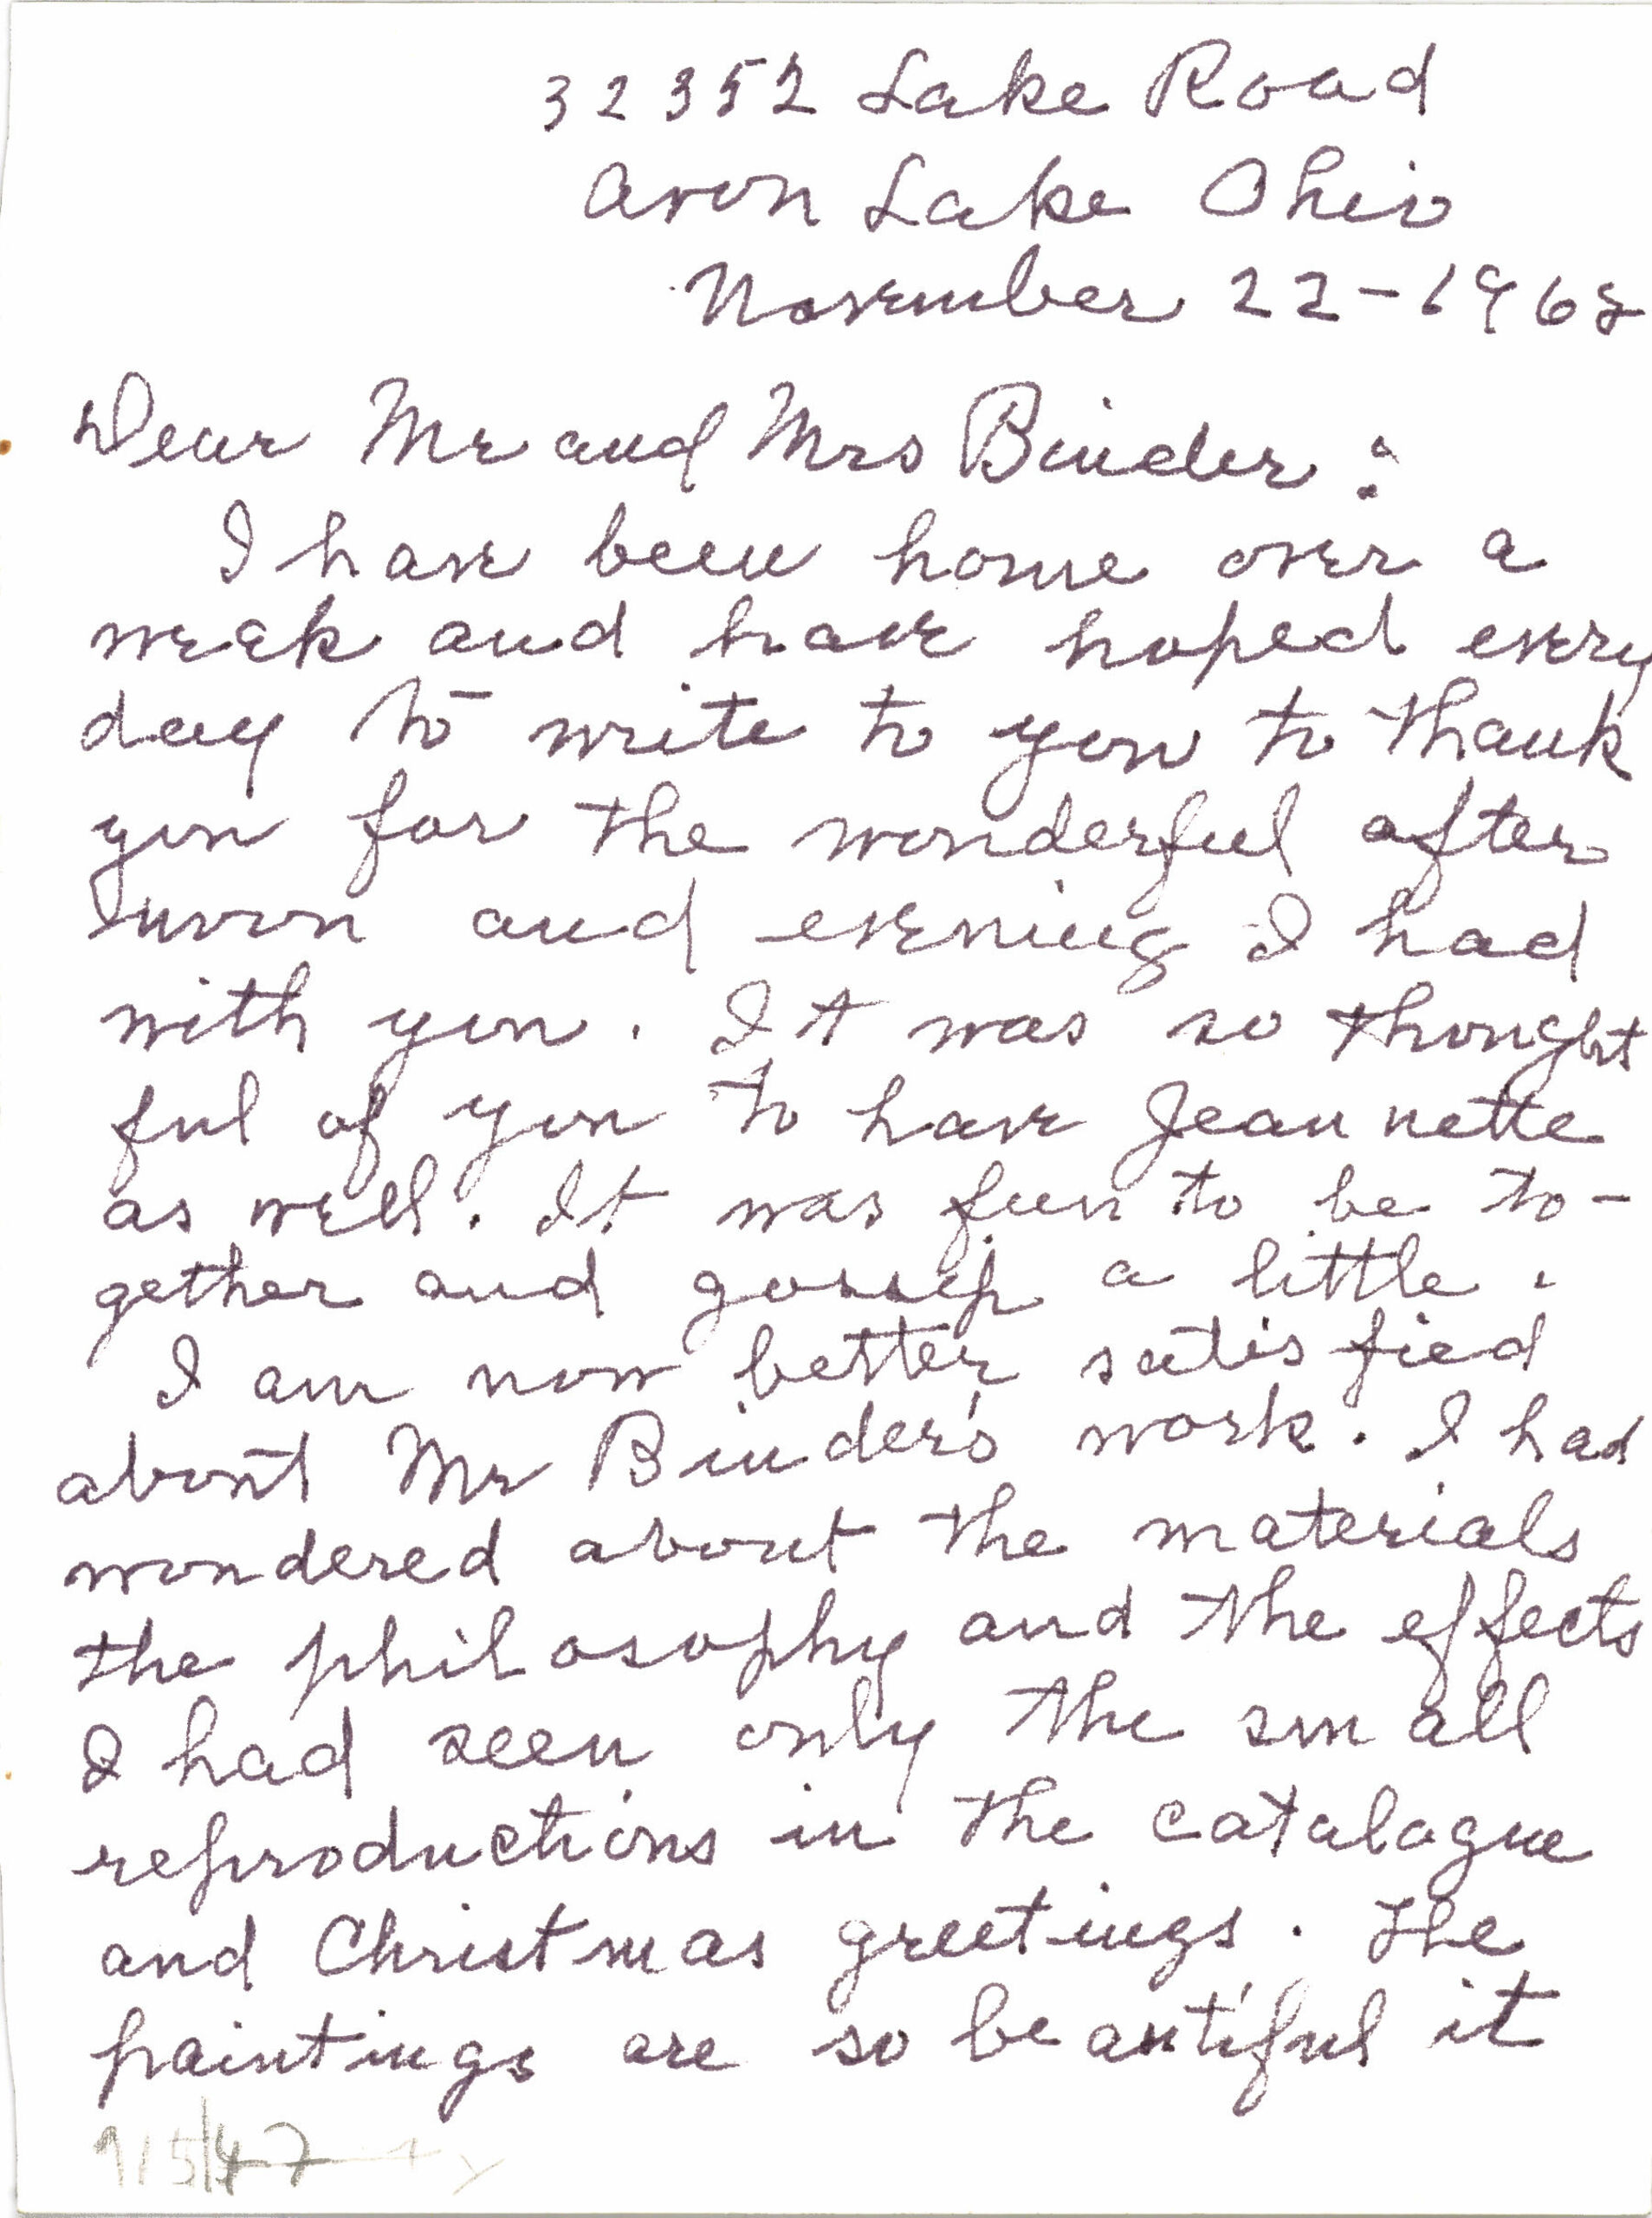 32352 Lake Road
Avon Lake Ohio
November 22-1968
Dear Mr and Mrs Binder:
I have been home over a
week and have hoped every
day to write to you to thank
you for the wonderful after
noon and evening I had
with you. It was so thought
ful of you to have Jeannette
as well. It was fun to be to-
gether and gossip a little.
I am now better satisfied
about Mr Binder's work. I had
wondered about the materials
the philosophy and the effects
I had seen only the small
reproductions in the catalogue
and Christmas greetings. The
paintings are so beautiful it